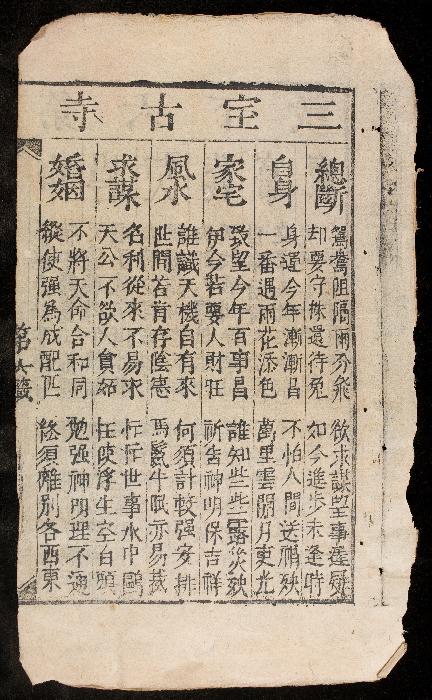 三宝古寺
總斷
鴛鴦阻隔兩分飛 欲求謀望事遲疑
却要守株還待兔 如今進步未逢時
自身
身運今年漸漸昌 不怕人間送禍殃
一番遇雨花添色 萬里雲開月更光
家宅
致望今年百事昌 誰知些些露災殃
伊今若要人財旺 祈告神明保吉祥
風水
誰識天機自有來 何須計較强安排
世間若肯存陰德 馬鬣牛眠亦易裁
求謀
名利從來不易求 忙忙世事水中鷗
天公不欲人貪 任使浮生空白頭
婚姻
不將天命合和同 勉强神明理不通
縱使强為成配匹 終須離別各西東
第六籤